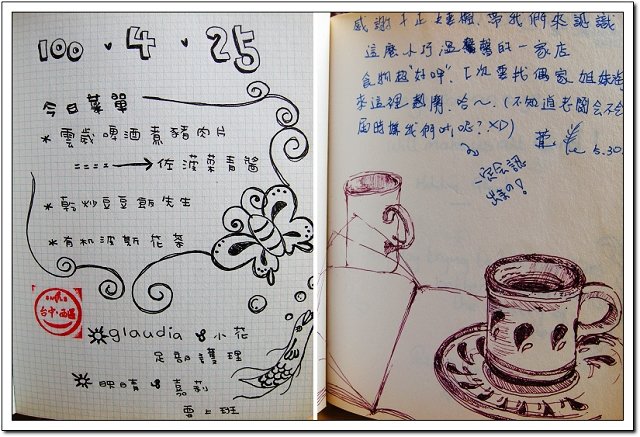 100.4.25
今日菜單
* 雲歲啤酒煮豬肉片
佐菠菜青醬
* 乾炒豆豆飯先生
* 有机波斯花菜
台中西區
glaudia & 小花
足部護理
映晴 & 嘉莉
雲上班
帶我們來認識
這麼小巧溫馨的一家店
食物超"好呷"、下次要找偶家姐妹淘
來這裡熱鬧、哈~(不知道老闆会不会
屆時 我們 呢?XD)
5.30
一定会認
出來の!